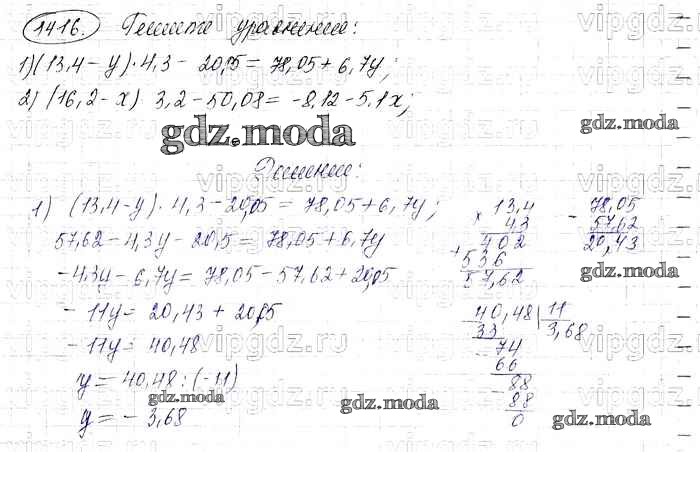 1416. Решите уравнения:
1) (13,4 - у) · 4,3 - 20,05 = 78,05 + 6,7у;
2) (16,2 - х) 3,2 - 50,08 = -8,12 - 5,1х;
gdz.moda
Решение:
1) (13,4 - у) · 4,3 - 20,05 = 78,05 + 6,7у;
57,62 - 4,3у - 20,5 = 78,05 + 6,7у
-4,3у - 6,7у = 78,05 - 57,62 + 20,05
-11у = 20,43 + 20,05
-11у = 40,48
у = 40,48 : (-11)
у = -3,68
13,4
× 4,3
402
+ 536
57,62
- 78,05
57,62
20,43
- 40,48 | 11
33 3,68
- 74
66
- 88
88
0
gdz.moda
gdz.moda
gdz.moda
gdz.moda
gdz.moda
vipgdz.ru